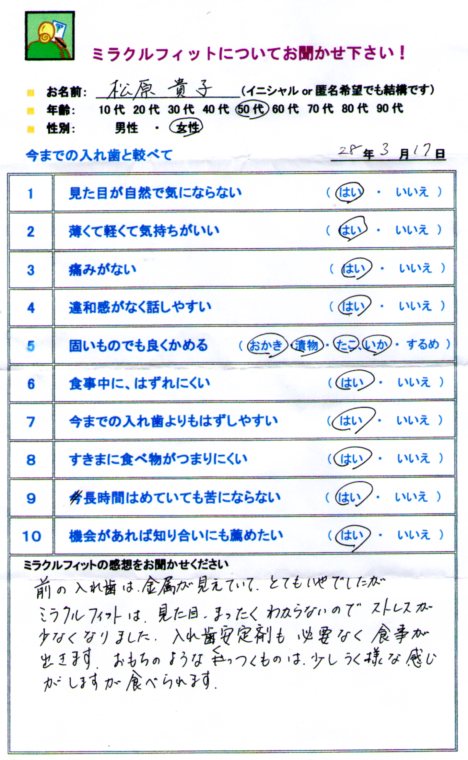 ミラクルフィットについてお聞かせ下さい！
お名前: 松原 貴子 (イニシャル or 匿名希望でも結構です)
年齢: 10代 20代 30代 40代 50代 60代 70代 80代 90代
性別: 男性 ・ 女性
今までの入れ歯と較べて 28年 3月 17日
1 見た目が自然で気にならない ( はい ・ いいえ )
2 薄くて軽くて気持ちがいい ( はい ・ いいえ )
3 痛みがない ( はい ・ いいえ )
4 違和感がなく話しやすい ( はい ・ いいえ )
5 固いものでも良くかめる ( おかき ・ 漬物 ・ たこ、いか ・ するめ )
6 食事中に、はずれにくい ( はい ・ いいえ )
7 今までの入れ歯よりもはずしやすい ( はい ・ いいえ )
8 すきまに食べ物がつまりにくい ( はい ・ いいえ )
9 長時間はめていても苦にならない ( はい ・ いいえ )
10 機会があれば知り合いにも薦めたい ( はい ・ いいえ )
ミラクルフィットの感想をお聞かせください
前の入れ歯は、金属が見えていて、とてもいやでしたが
ミラクルフィットは、見た目、まったくわからないのでストレスが
少なくなりました。入れ歯安定剤も必要なく食事が
出きます。おもちのような くっつくものは、少しうく様な感じ
がしますが食べられます。